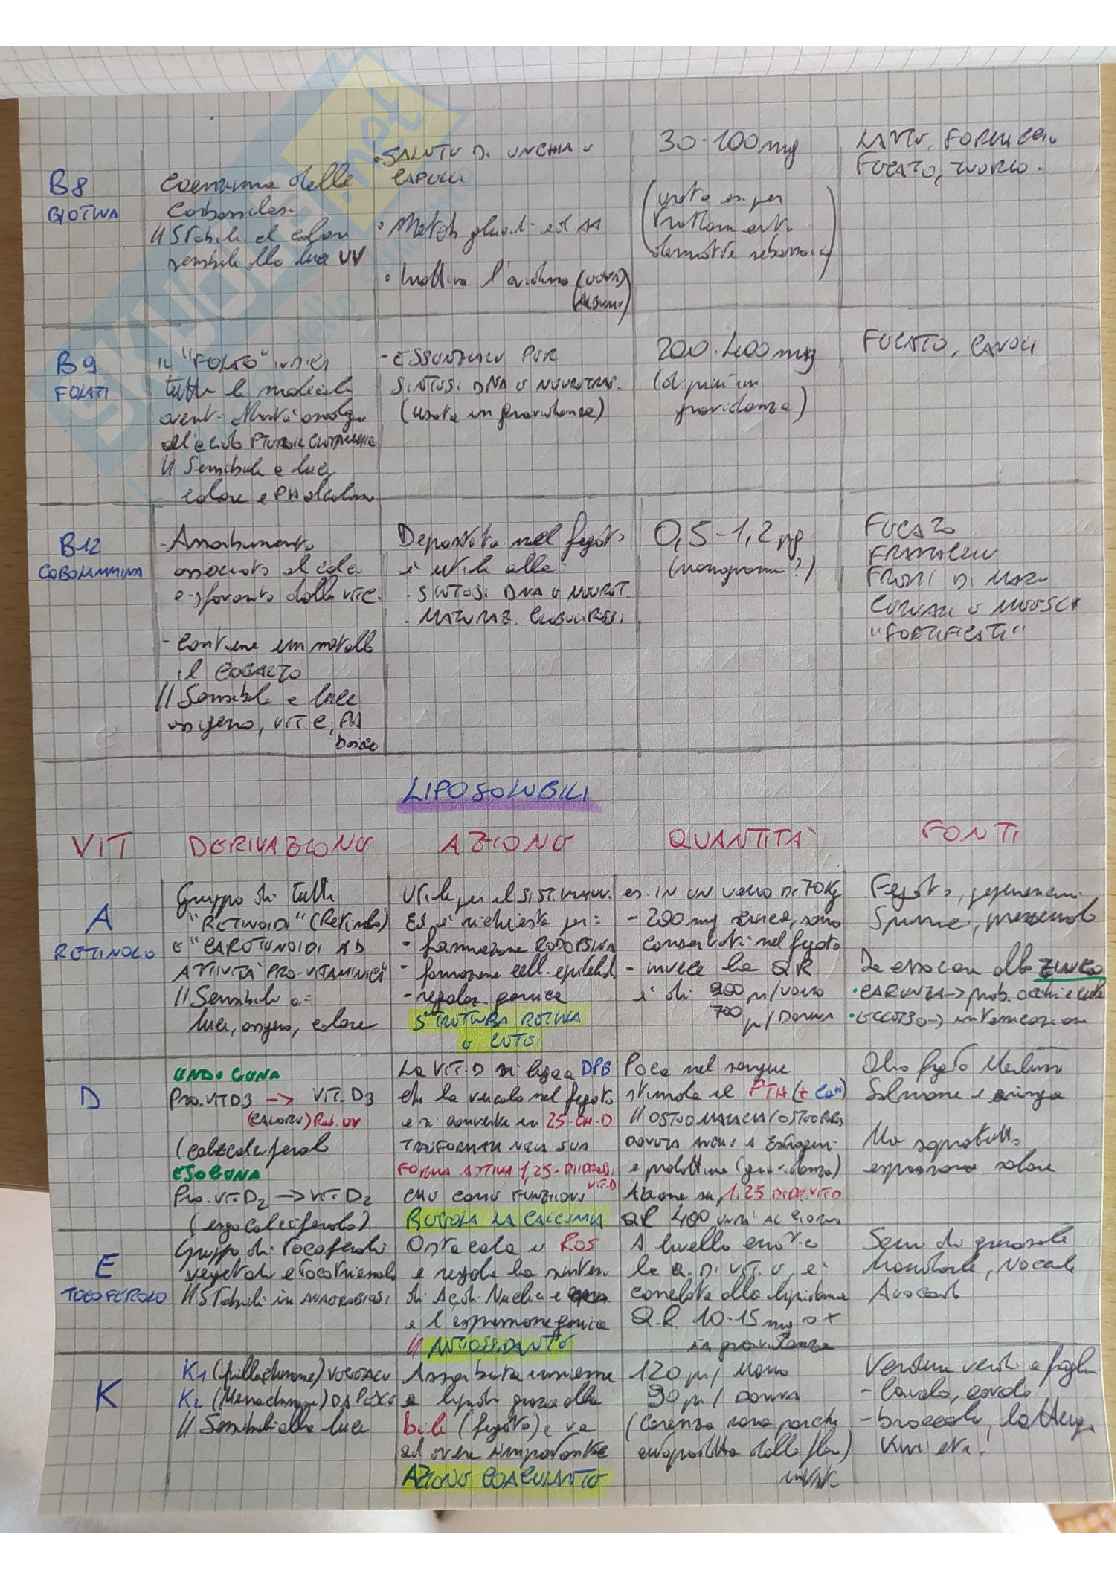 B8
BIOTINA
Coenzima delle
Carbossilasi
// Stabile al calore
sensibile alla luce UV
• SALUTE DI UNGHIA E
CAPELLI
• Metab glucidi ed AA
• Inattiva l'avidina (UOVA)
(ALBUME)
30-100 mg
(usata es. per
trattamenti
dermatite seborroica)
LATTE, FORMAGGIO
FEGATO, TUORLO.
B9
FOLATI
IL "FOLATO" indica
tutte le molecole
aventi attività analoga
all'acido PTEROIL GLUTAMMICO
// Sensibile a luce
calore e PH alcalino
- ESSENZIALE PER
SINTESI DNA E NEUROTRAS.
(usata in gravidanza)
200-400 mg
(di più in
gravidanza)
FEGATO, CAVOLI
B12
COBOLAMMINA
- Assorbimento
associato al calcio
e sfavorito dalla VIT C.
- Contiene un metallo
il COBALTO
// Sensibile a luce
ossigeno, VIT C, PH
basico
Depositata nel fegato
è utile alla
. SINTESI DNA E NEUROT.
. MATURAZ. GLOBULI ROSSI
0,5-1,2 μg
(nanogrammi?)
FEGATO
FRATTAGLIE
FRUTTI DI MARE
CEREALI E MUESLI
"FORTIFICATI"
LIPOSOLUBILI
VIT
DERIVAZIONE
AZIONE
QUANTITÀ
FONTI
A
RETINOLO
Gruppo di tutti
"RETINOIDI" (Retinolo)
E "CAROTENOIDI AD
ATTIVITÀ PRO-VITAMINICA
// Sensibile a:
luce, ossigeno, calore
Utile per il SIST. IMMUN.
Ed è richiesta per:
- formazione RODOPSINA
- formazione cell. epiteliali
- regolaz. genica
STRUTTURA RETINA
E CUTE
es. IN UN UOMO DI 70Kg
- 200 mg
conservati nel fegato
- invece la QR
è di 900 μ/uomo
700 μ/DONNA
Fegato, peperoncini
Spinaci, prezzemolo
Da associare allo ZINCO
• CARENZA -> prob. occhi e cute
• ECCESSO -> intossicazione
D
ENDOGENA
Pro.VITD3 -> VIT. D3
(CALORE) Rad. UV
(colecalciferolo)
ESOGENA
Pro.VIT D2 -> VIT D2
(ergocalciferolo)
La VIT. D si lega a DPB
che la veicola nel fegato
e si converte in 25-OH-D
TRASFORMATA NELLA SUA
FORMA ATTIVA 1,25-DIIDROSSI
VIT.D
CHE COME FUNZIONE
REGOLA LA CALCEMIA
Poca nel sangue
stimola il PTH (+ Ca²⁺)
// OSTEOMALACIA/OSTEOPOR
DOVUTA ANCHE A Estrogeni
e prolattina (gravidanza)
Azione su 1,25 DIIDR. VIT D
QR 400 unità AL GIORNO
Olio fegato Merluzzo
Salmone e aringa
Ma soprattutto
esposizione solare
E
TOCOFEROLO
Gruppo di: Tocoferoli
vegetali e Tocotrienoli
// Stabili in ANAEROBIOSI
Ostacola i ROS
e regola la sintesi
di Acidi Nucleici e
e l'espressione genica
// ANTIOSSIDANTE
A livello ematico
la Q. DI VIT. E è
correlata alla lipidemia
Q.R. 10-15 mg o +
in gravidanza
Semi di girasole
Mandorle, Nocciole
Avocado
K
K1 (fillochinone) VEGETALE
K2 (Menachinone) DA PESCE
// Sensibili alla luce
Assorbita insieme
a lipidi grazie alla
bile (fegato) e va
ad avere importante
AZIONE COAGULANTE
120 μ/ Uomo
90 μ/ DONNA
(Carenza rara perché
autoprodotta dalla flora)
intest.
Verdura verde a foglia
- cavolo
- broccoli, lattuga
Kiwi etc.